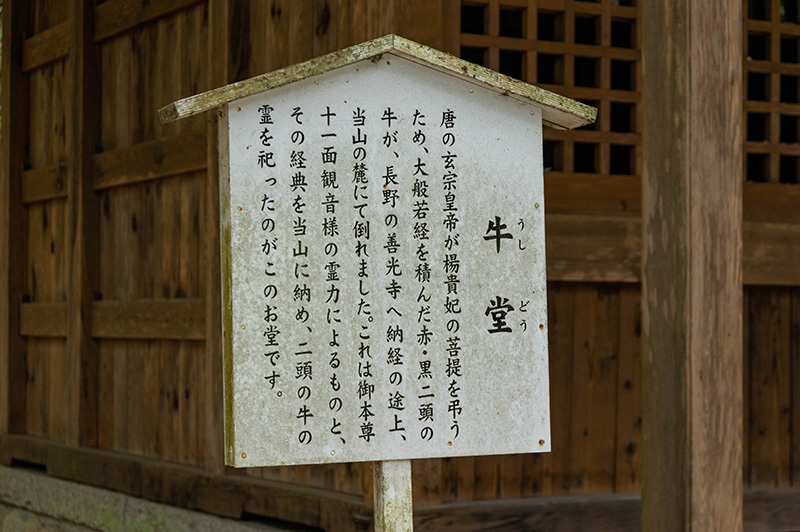 牛堂
うしどう
唐の玄宗皇帝が楊貴妃の菩提を弔う
ため、大般若経を積んだ赤・黒二頭の
牛が、長野の善光寺へ納経の途上、
当山の麓にて倒れました。これは御本尊
十一面観音様の霊力によるものと、
その経典を当山に納め、二頭の牛の
霊を祀ったのがこのお堂です。